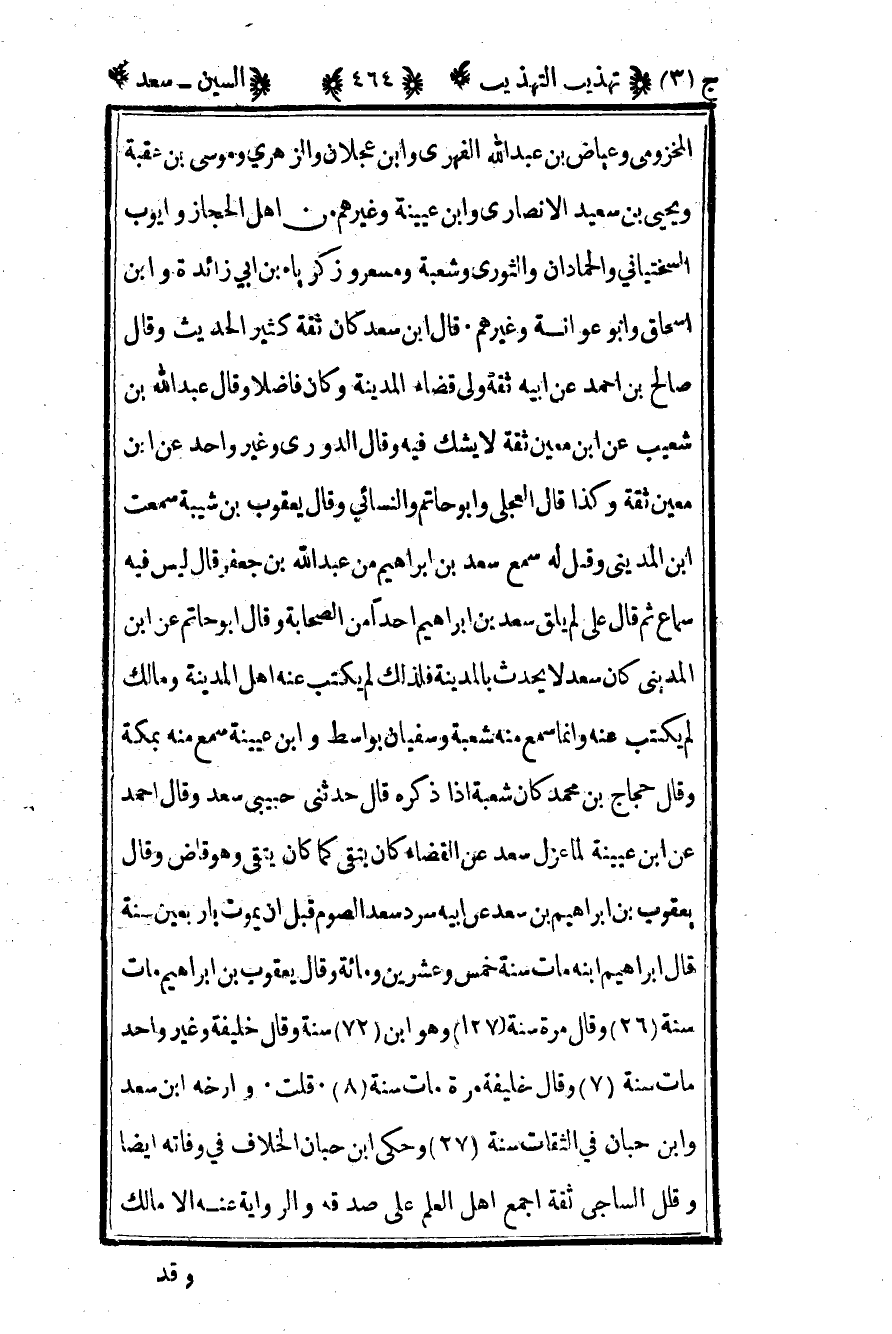 ج (٣) تهذيب التهذيب ٤٦٤ السين ـ سعد
المخزومى وعياض بن عبدالله الفهرى وابن عجلان والزهري وموسى بن عقبة
ويحيى بن سعيد الانصارى وابن عيينة وغيرهم من اهل الحجاز وايوب
السختياني والحمادان والثورى وشعبة ومسعر وزكرياء بن ابي زائدة وابن
اسحاق وابو عوانة وغيرهم · قال ابن سعد كان ثقة كثير الحديث وقال
صالح بن احمد عن ابيه ثقة ولى قضاء المدينة وكان فاضلا وقال عبدالله بن
شعيب عن ابن معين ثقة لا يشك فيه وقال الدورى وغير واحد عن ابن
معين ثقة وكذا قال العجلى وابو حاتم والنسائي وقال يعقوب بن شيبة سمعت
ابن المدينى وقيل له سمع سعد بن ابراهيم من عبدالله بن جعفر قال ليس فيه
سماع ثم قال على لم يلق سعد بن ابراهيم احداً من الصحابة وقال ابو حاتم عن ابن
المدينى كان سعد لا يحدث بالمدينة فلذلك لم يكتب عنه اهل المدينة ومالك
لم يكتب عنه وانما سمع منه شعبة وسفيان بواسط وابن عيينة سمع منه بمكة
وقال حجاج بن محمد كان شعبة اذا ذكره قال حدثنى حبيبى سعد وقال احمد
عن ابن عيينة لما عزل سعد عن القضاء كان يتقى كما كان يتقى وهو قاض وقال
يعقوب بن ابراهيم بن سعد عن ابيه سرد سعد الصوم قبل ان يموت باربعين سنة
قال ابراهيم ابنه مات سنة خمس وعشرين ومائة وقال يعقوب بن ابراهيم مات
سنة (٢٦) وقال مرة سنة (١٢٧) وهو ابن (٧٢) سنة وقال خليفة وغير واحد
مات سنة (٧) وقال خليفة مرة مات سنة (٨) · قلت · وارخه ابن سعد
وابن حبان في الثقات سنة (٢٧) وحكى ابن حبان الخلاف في وفاته ايضا
وقلل الساجى ثقة اجمع اهل العلم على صدقه والرواية عنه الا مالك
وقد